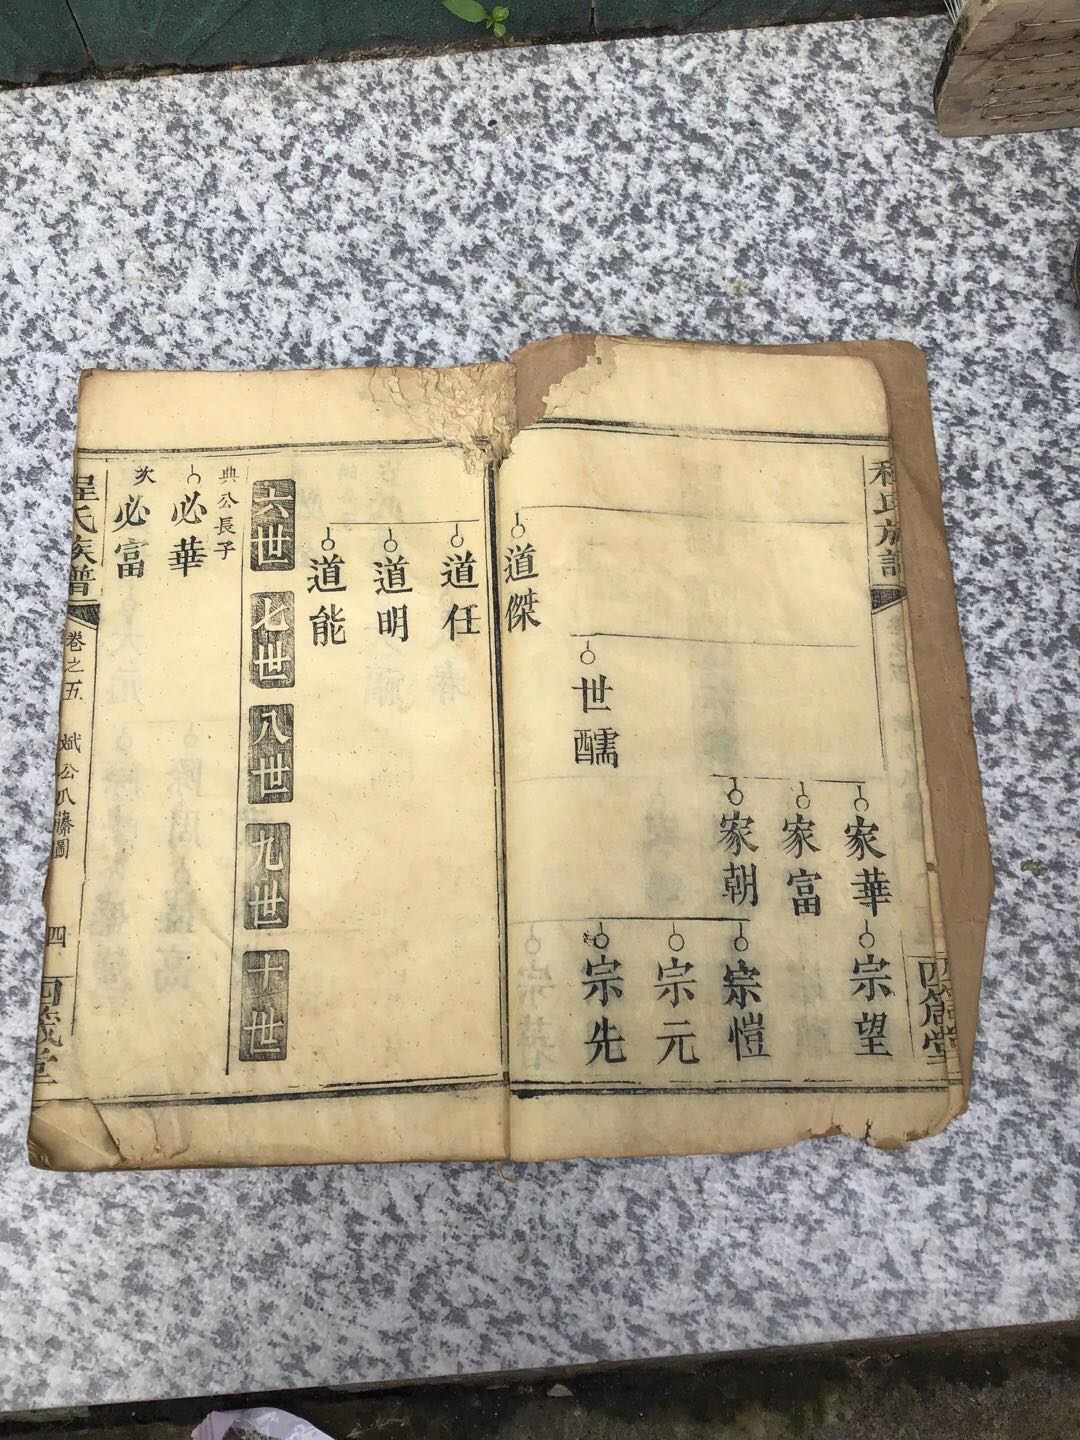 程氏族譜
四箴堂
家華
宗望
家富
家朝
宗愷
宗元
世醹
宗先
道傑
道任
道明
道能
六世
七世
八世
九世
十世
典公長子
必華
次
必富
程氏族譜
卷之五
斌公爪藤圖
四
四箴堂